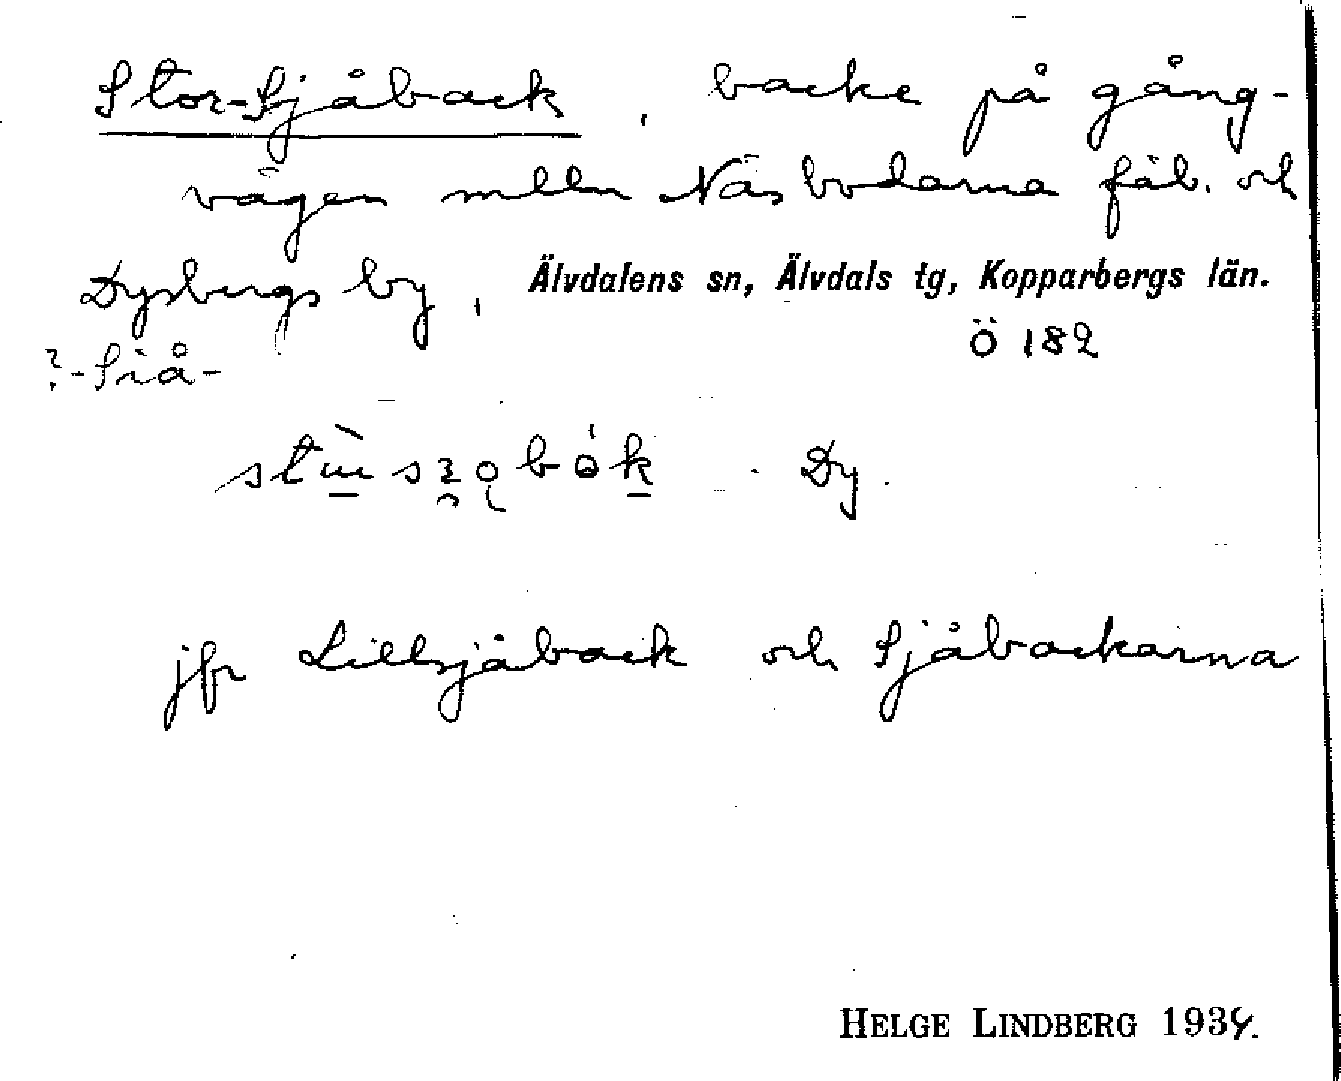 Stor-Sjåback, backe på gång-
vägen mlln Näsbodarna fäb. och
Dysbergs by, Älvdalens sn, Älvdals tg, Kopparbergs län.
?-Siå- Ö 182
Dy.
jfr Lillsjåback och Sjåbackarna
HELGE LINDBERG 1934.